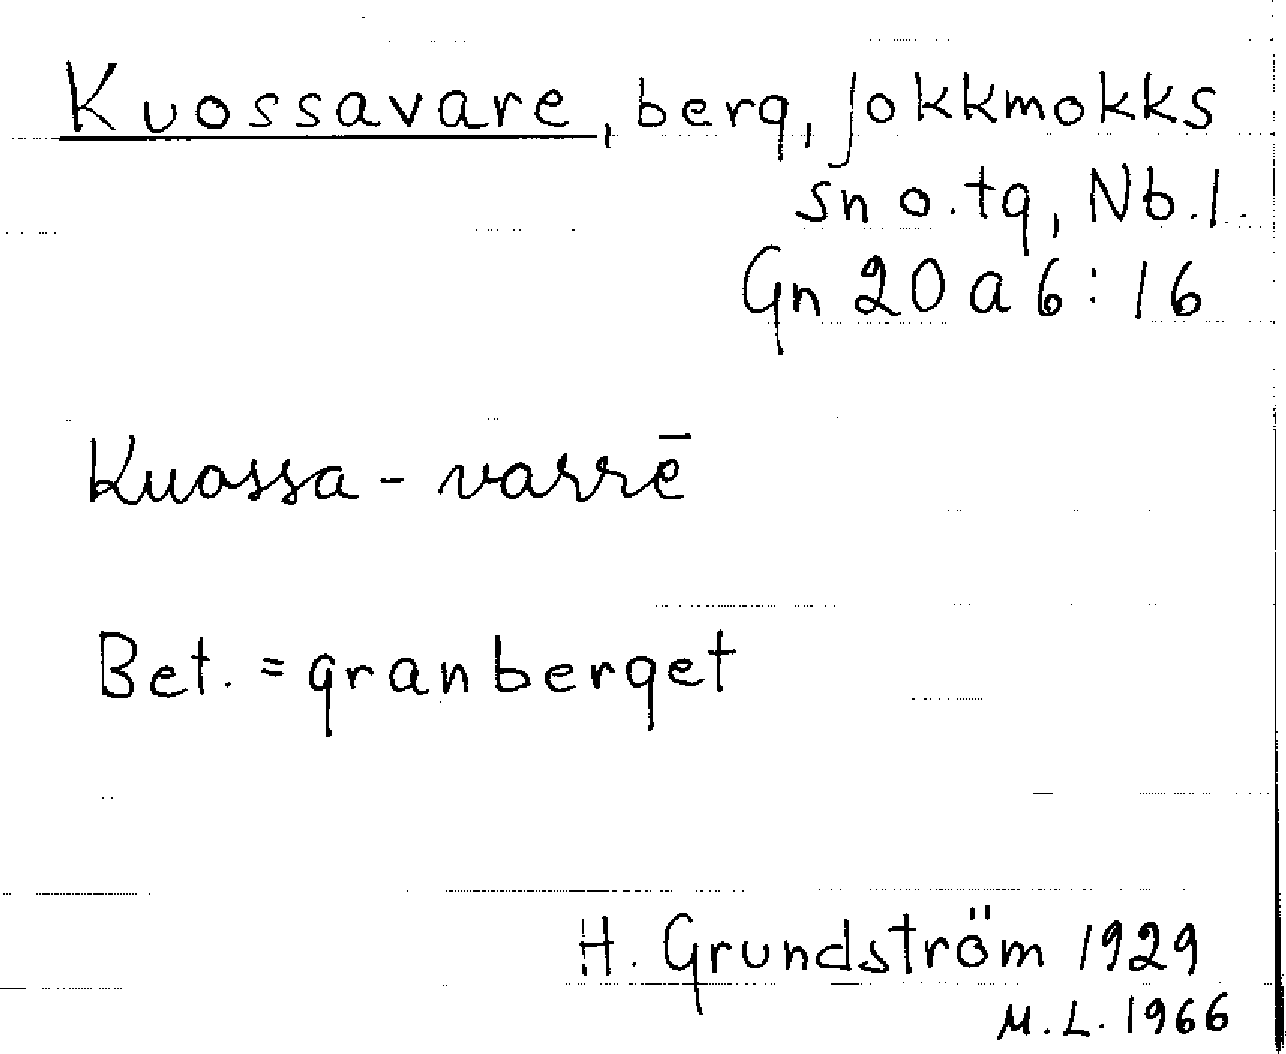 Kuossavare, berg, Jokkmokks
sn o. tg, Nb. l.
Gn 20 a 6:16
Kuossa-varrē
Bet. = granberget
H. Grundström 1929
M.L. 1966